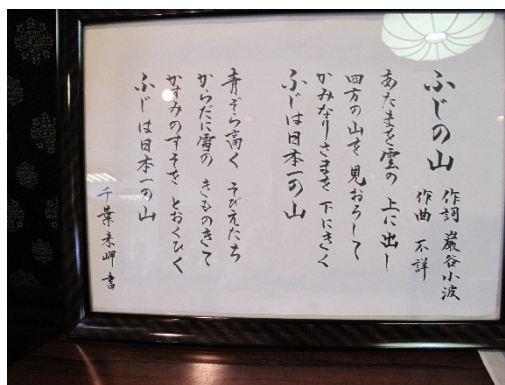 ふじの山
作詞 巌谷小波
作曲 不詳
あたまを雲の 上に出し
四方の山を 見おろして
かみなりさまを 下にきく
ふじは日本一の山
青ぞら高く そびえたち
からだに雪の きものきて
かすみのすそを とおくひく
ふじは日本一の山
千葉 岬 書